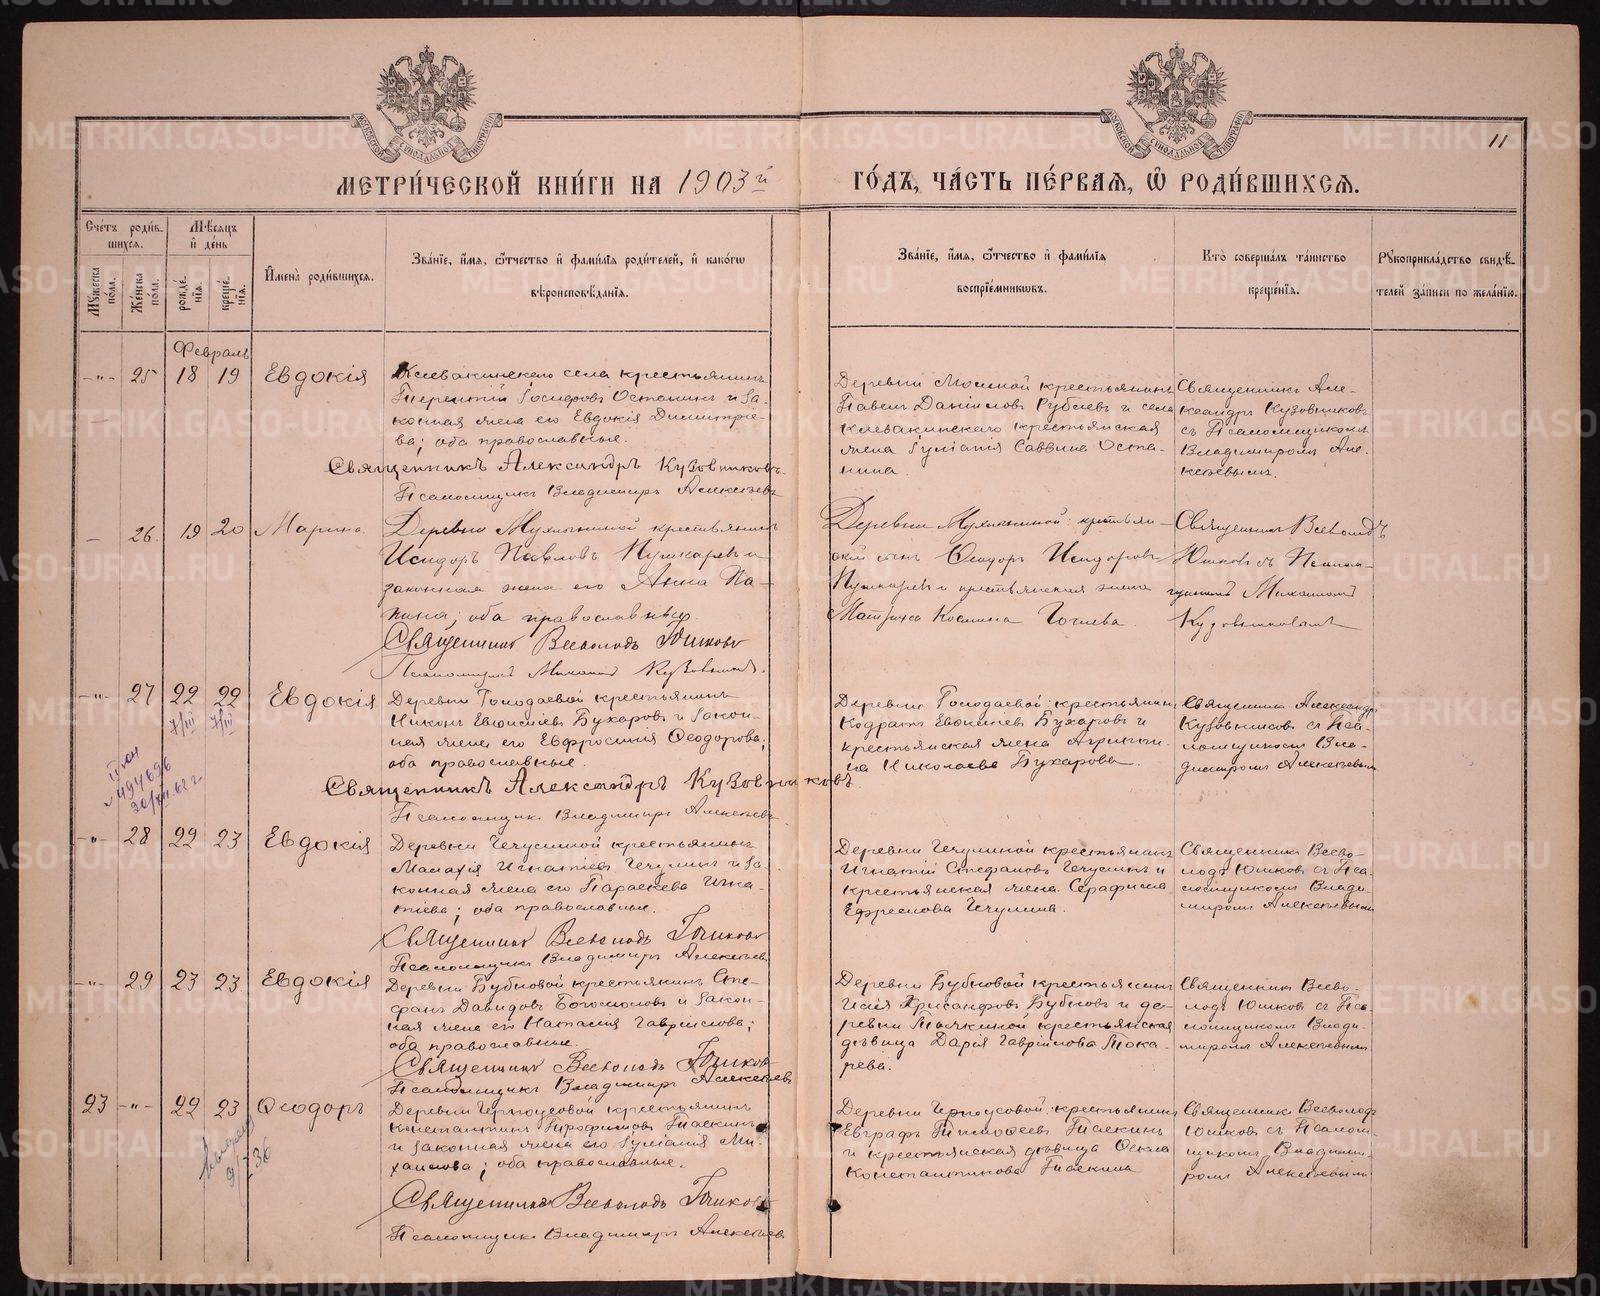 МЕТРИ́ЧЕСКОЙ КНИ́ГИ НА 1903 й
ГО́ДЪ, ЧА́СТЬ ПЕ́РВАЯ, Ѽ РОДИ́ВШИХСЯ.
11
Сче́тъ роди́в-
шихся.
Мѣсяцъ
и де́нь
Мꙋжеска по́ла.
Же́нска по́ла.
рожде́-
нїя.
креще́-
нїя.
И́мена̀ роди́вшихся.
Зва́нїе, и́мя, ѻ́тчество и фами́лїя роди́телей, и како́гѡ
вѣроисповѣ́данїя.
Зва́нїе, и́мя, ѻ́тчество и фами́лїя
воспрїе́мникѡвъ.
Кто̀ соверша́лъ та́инство
креще́нїя.
Рꙋкоприкла́дство свидѣ́-
телей за́писи по жела́нїю.
Февраль
-"- 25 18 19 Евдокія
Клевакинскаго села крестьянинъ
Терентій Іосифовъ Останинъ и за-
конная жена его Евдокія Димитріе-
ва; оба православные.
Священникъ Александръ Кузовниковъ
Псаломщикъ Владимиръ Алексѣевъ
Деревни крестьянинъ
Павелъ Даніиловъ Рублевъ и села
Клевакинскаго крестьянская
жена Іуліанія Саввина Оста-
нина.
Священникъ Але-
ксандръ Кузовниковъ
съ Псаломщикомъ
Владимиромъ Але-
ксѣевымъ.
- 26. 19 20 Марина
Деревни крестьянинъ
Исидоръ Павловъ Пушкаревъ и
законная жена его Анна
оба православные
Священникъ Всеволодъ Юшковъ
Псаломщикъ Михаилъ Кузовниковъ.
Деревни крестьян-
скій сынъ Ѳеодоръ Исидоровъ
Пушкаревъ и крестьянская жена
Космина
Священникъ Всеволодъ
Юшковъ съ Псалом-
щикомъ Михаиломъ
Кузовниковымъ
-"- 27 22 22 Евдокія
7/III 7/III
Деревни Голодаевой крестьянинъ
Никонъ Евюисіевъ Бухаровъ и закон-
ная жена его Евфросинія Ѳеодорова;
оба православные.
Священникъ Александръ Кузовниковъ
Псаломщикъ Владимиръ Алексѣевъ
Деревни Голодаевой крестьянинъ
Кодратъ Бухаровъ и
крестьянская жена Агриппи-
на Николаева Бухарова.
Священникъ Александръ
Кузовниковъ съ Пса-
ломщикомъ Вла-
димиромъ Алексѣевымъ
№ 494696
-"- 28 22 23 Евдокія
Деревни Чечулиной крестьянинъ
Малахія Игнатіевъ Чечулинъ и за-
конная жена его Параскева Игна-
тіева; оба православные.
Священникъ Всеволодъ Юшковъ
Псаломщикъ Владимиръ Алексѣевъ
Деревни Чечулиной крестьянинъ
Игнатій Стефановъ Чечулинъ и
крестьянская жена Серафима
Ефремова Чечулина.
Священникъ Всево-
лодъ Юшковъ съ Пса-
ломщикомъ Влади-
миромъ Алексѣевымъ
-"- 29 23 23 Евдокія
Деревни Бубновой крестьянинъ Сте-
фанъ Давидовъ Богомоловъ и закон-
ная жена его Наталія Гавріилова;
оба православные.
Священникъ Всеволодъ Юшковъ
Псаломщикъ Владимиръ Алексѣевъ
Деревни Бубновой крестьянинъ
Исаія Хрисанфовъ Бубновъ и де-
ревни крестьянская
дѣвица Дарія Гавріилова Тока-
рева.
Священникъ Всево-
лодъ Юшковъ съ Пса-
ломщикомъ Влади-
миромъ Алексѣевымъ
23 -"- 22 23 Ѳеодоръ
Деревни Черноусовой крестьянинъ
Константинъ Гаевъ
и законная жена его Іуліанія Ми-
хаилова; оба православные.
Священникъ Всеволодъ Юшковъ
Псаломщикъ Владимиръ Алексѣевъ
Деревни Черноусовой крестьянинъ
Евграфъ Тимоѳеевъ
и крестьянская дѣвица
Константинова
Священникъ Всеволодъ
Юшковъ съ Псалом-
щикомъ Владими-
ромъ Алексѣевымъ
METRIKI.GASO-URAL.RU